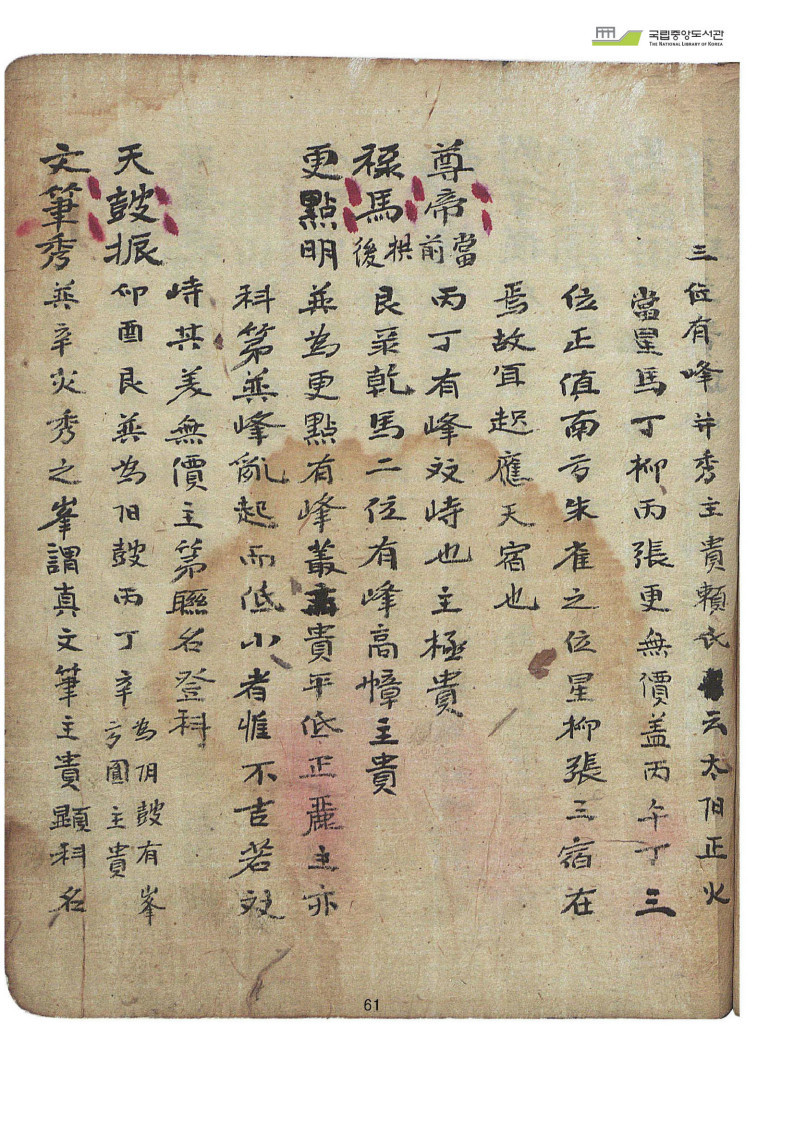 국립중앙도서관
THE NATIONAL LIBRARY OF KOREA
三位有峰幷秀主貴賴氏云太阳正火
當星馬丁柳丙張更無價盖丙午丁三
位正值南方朱雀之位星柳張三宿在
焉故宜起應天宿也
尊帝當前丙丁有峰双峙也主極貴
祿馬拱後艮巽乾馬二位有峰高幛主貴
更點明巽為更點有峰叢貴平低正麗主亦
科第巽峰亂起而低小者惟不吉若双
峙其美無價主第聯名登科
天鼓振卯酉艮巽為阳鼓丙丁辛為阴鼓有峯方圓主貴
文筆秀巽辛火秀之峯謂真文筆主貴顯科名
61